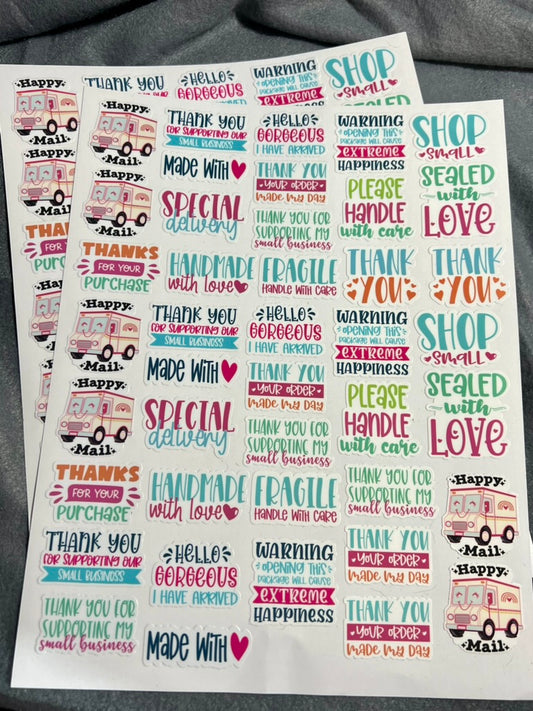 Happy
Mail
THANK YOU
HELLO
GORGEOUS
WARNING
OPENING THIS
PACKAGE WILL CAUSE
EXTREME
SHOP
SMALL
Mail
Happy
Mail
THANKS
FOR YOUR
PURCHASE
Happy
Mail
THANK YOU
FOR SUPPORTING OUR
SMALL BUSINESS
HELLO
GORGEOUS
I HAVE ARRIVED
WARNING
OPENING THIS
PACKAGE WILL CAUSE
EXTREME
HAPPINESS
SHOP
SMALL
MADE WITH
THANK YOU
YOUR ORDER
made my DAY
PLEASE
HANDLE
with care
SEALED
with
LOVE
Happy
Mail
SPECIAL
delivery
THANK YOU FOR
SUPPORTING MY
small business
THANKS
FOR YOUR
PURCHASE
HANDMADE
with love
FRAGILE
HANDLE WITH CARE
THANK
YOU
THANK
YOU
Happy
Mail
THANK YOU
FOR SUPPORTING OUR
SMALL BUSINESS
HELLO
GORGEOUS
I HAVE ARRIVED
WARNING
OPENING THIS
PACKAGE WILL CAUSE
EXTREME
HAPPINESS
SHOP
SMALL
MADE WITH
THANK YOU
YOUR ORDER
made my DAY
PLEASE
HANDLE
with care
SEALED
with
LOVE
Happy
Mail
SPECIAL
delivery
THANK YOU FOR
SUPPORTING MY
small business
THANKS
FOR YOUR
PURCHASE
HANDMADE
with love
FRAGILE
HANDLE WITH CARE
THANK YOU FOR
SUPPORTING MY
small business
Happy
Mail
THANK YOU
FOR SUPPORTING OUR
SMALL BUSINESS
HELLO
GORGEOUS
I HAVE ARRIVED
WARNING
OPENING THIS
PACKAGE WILL CAUSE
EXTREME
HAPPINESS
THANK YOU
YOUR ORDER
made my DAY
Happy
Mail
THANK YOU FOR
SUPPORTING MY
small business
MADE WITH
THANK YOU
YOUR ORDER
made my DAY